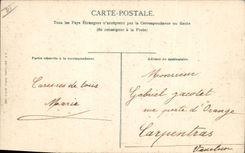 CARTE-POSTALE.
Tous les Pays Étrangers n'acceptent pas la Correspondance au Recto
(Se renseigner à la Poste)
Partie réservée à la correspondance
Adresse du destinataire
Caresses de tous
Marie
Monsieur
Gabriel
rue porte d'Orange
Carpentras
Vaucluse